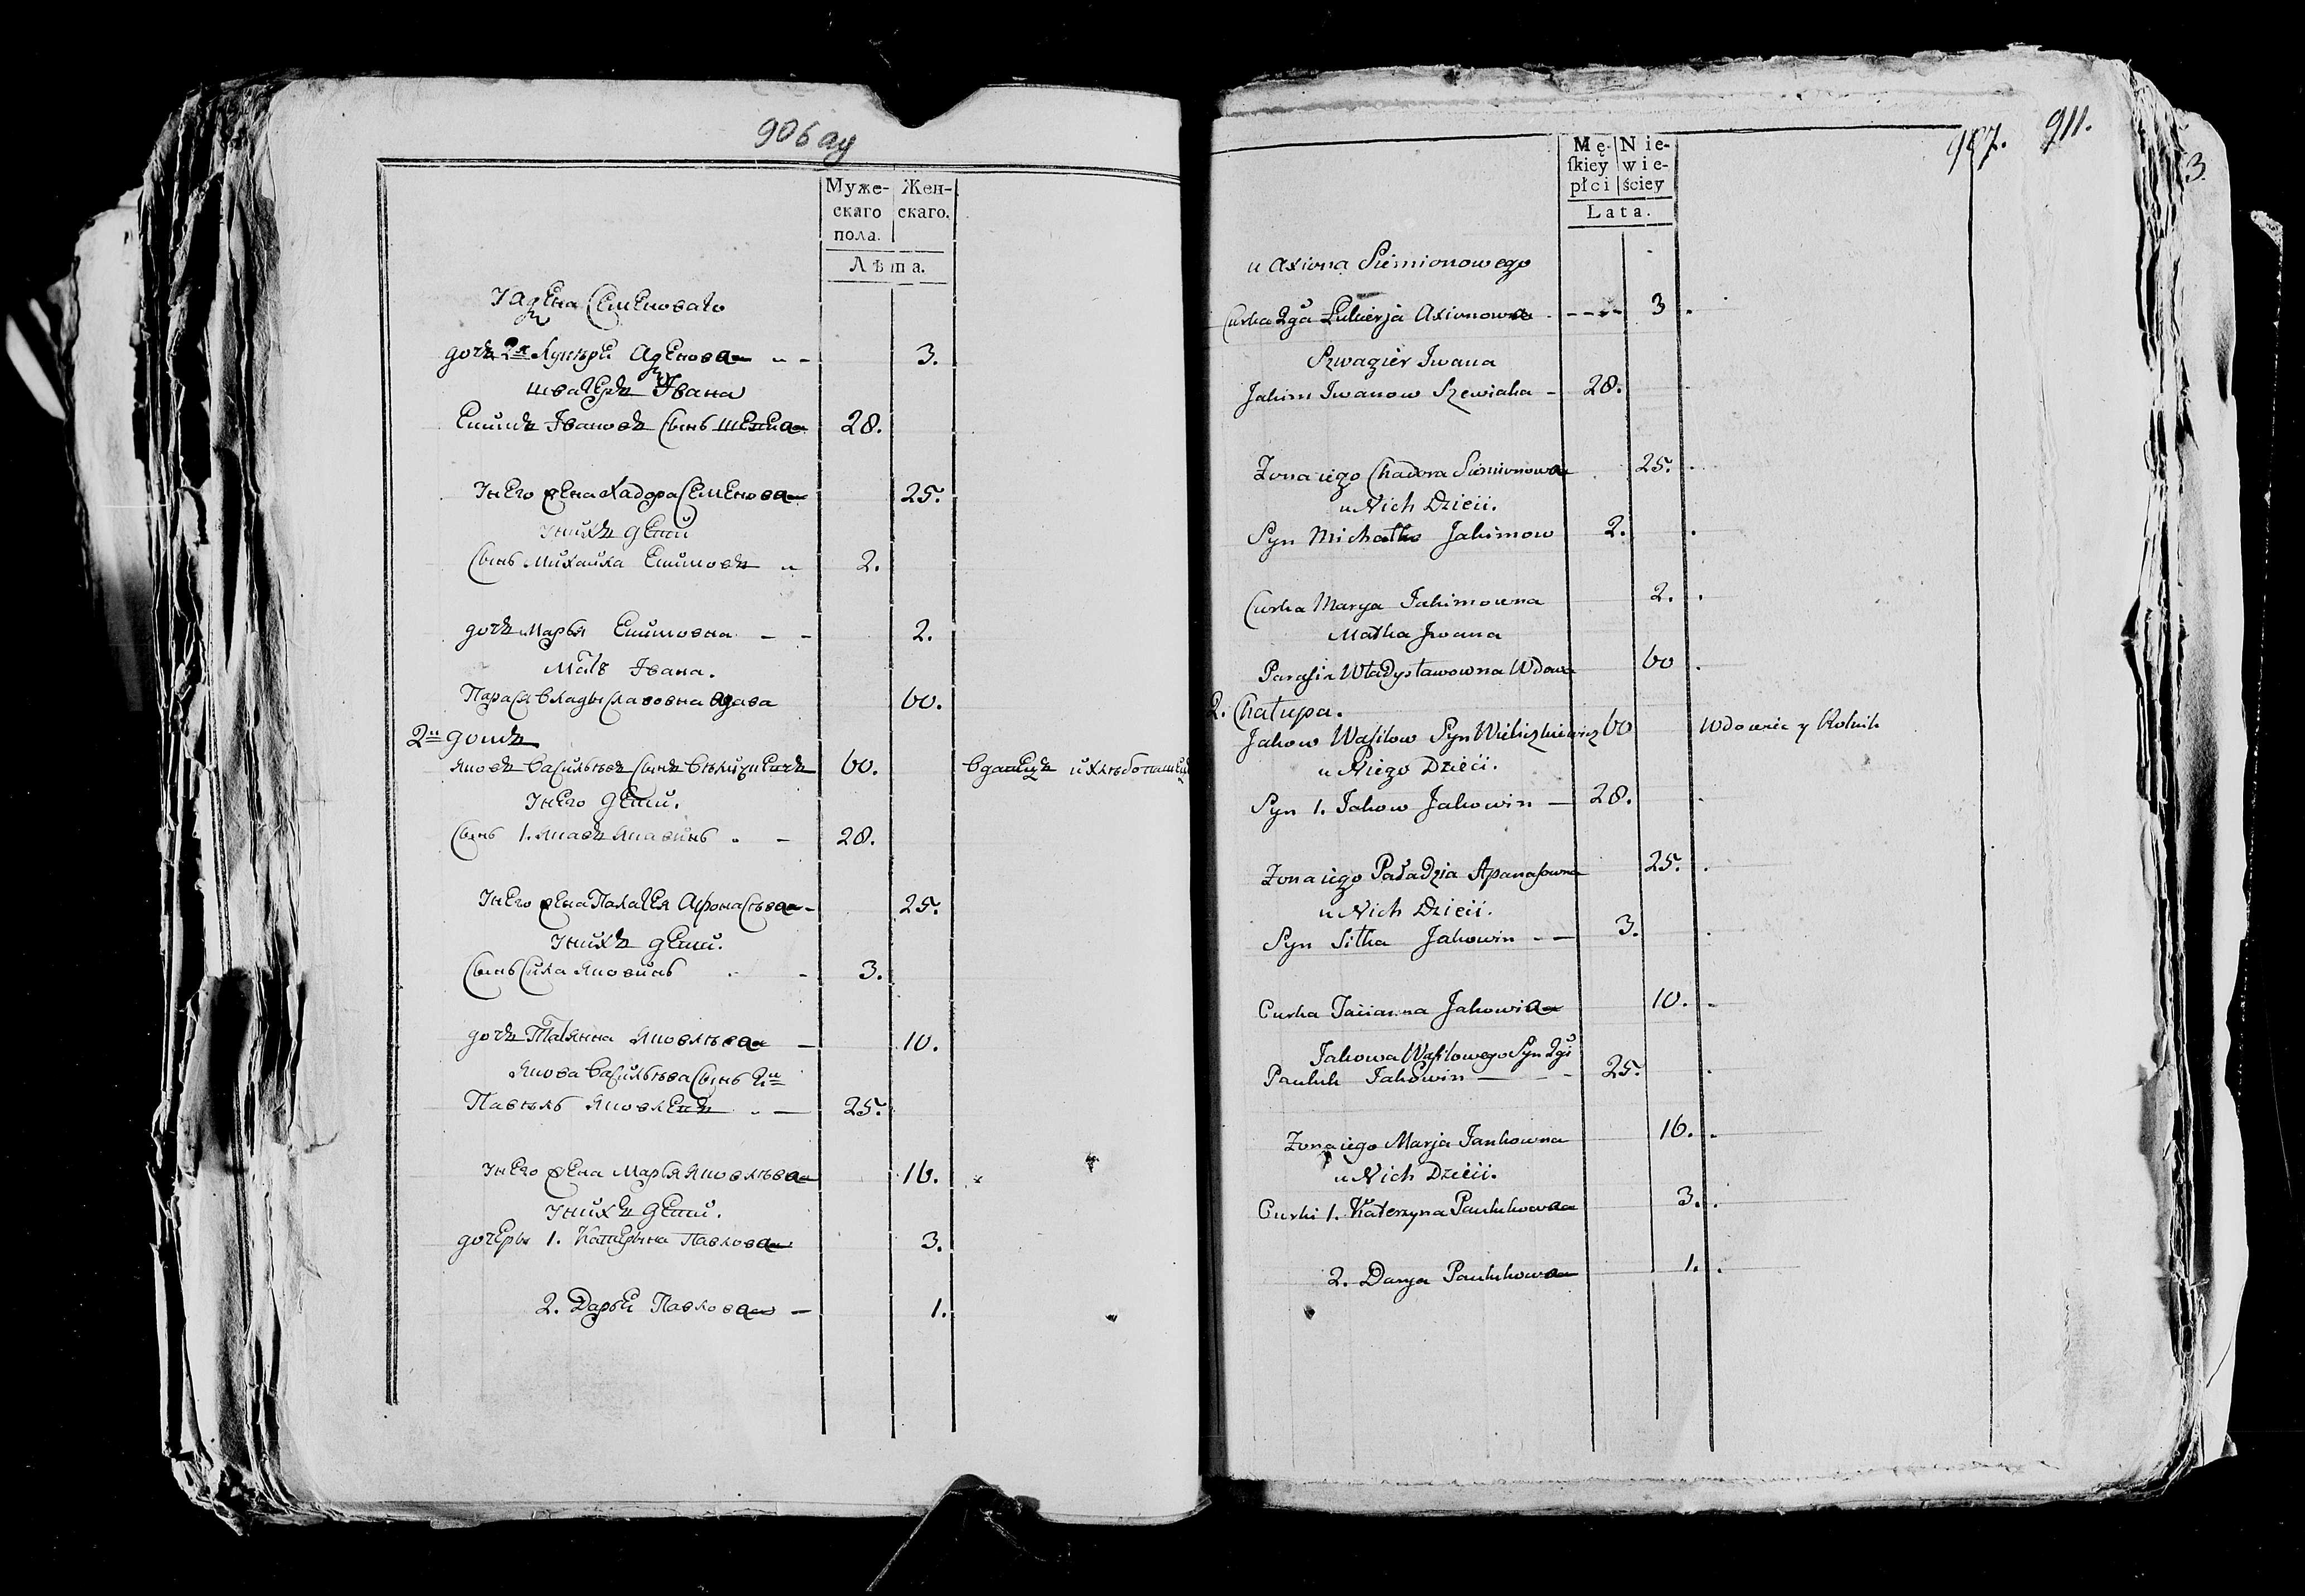 906 ау
Муже-
скаго
пола.
Жен-
скаго.
Лѣта.
У аѯена Семеноваго
дочь 2я Лукѣрья Аѯенова 3.
швагеръ Ивана
Екимъ Івановъ сынъ 28.
У него жена Хадора Семенова 25.
У нихъ дети
сынъ Михайла Екимовъ 2.
дочь Марья Екимовна 2.
Мать Івана.
Парася владыславовна вдова 60.
2й домъ
Яковъ Васильевъ сынъ 60. вдовецъ и хлѣбопашецъ
У него дети.
сынъ 1. Яковъ Яковинъ 28.
У него жена Палагея Афонасьева 25.
У нихъ дети.
сынъ Сила Яковинъ 3.
дочь Татьянна Яковлѣва 10.
Якова Васильева сынъ 2й
Павелъ Яковлевъ 25.
У него жена Марья Яковлѣва 16.
У нихъ дети.
дочеры 1. Катерына Павлова 3.
2. Дарьи Павлова 1.
907. 911.
3.
Mę-
skiey
płci
Nie-
wie-
ściey
Lata.
u Axiona Siemionowego
Curka 2ga Łukierja Axionowna 3
Szwagier Iwana
Jakim Iwanow Szewiaka 28.
Zona iego Chadora Siemionowna 25.
u Nich Dzieii.
Syn Michałko Jakimow 2.
Curka Marya Jakimowna 2.
Matka Jwana
Parasia Władysławowna Wdowa 60
2. Chałupa.
Jakow Wasilow Syn 60 Wdowiec y Rolnik
u Niego Dzieci.
Syn 1. Jakow Jakowin 28.
Zona iego Paładzia Apanasowna 25.
u Nich Dzieii.
Syn Siłka Jakowin 3.
Curka Taiianna Jakowina 10.
Jakowa Wasilowego Syn 2gi
Pauluk Jakowin 25.
Zona iego Marja Jankowna 16.
u Nich Dzieii.
Curki 1. Katerzyna Paulukowna 3.
2. Darya Paulukowna 1.